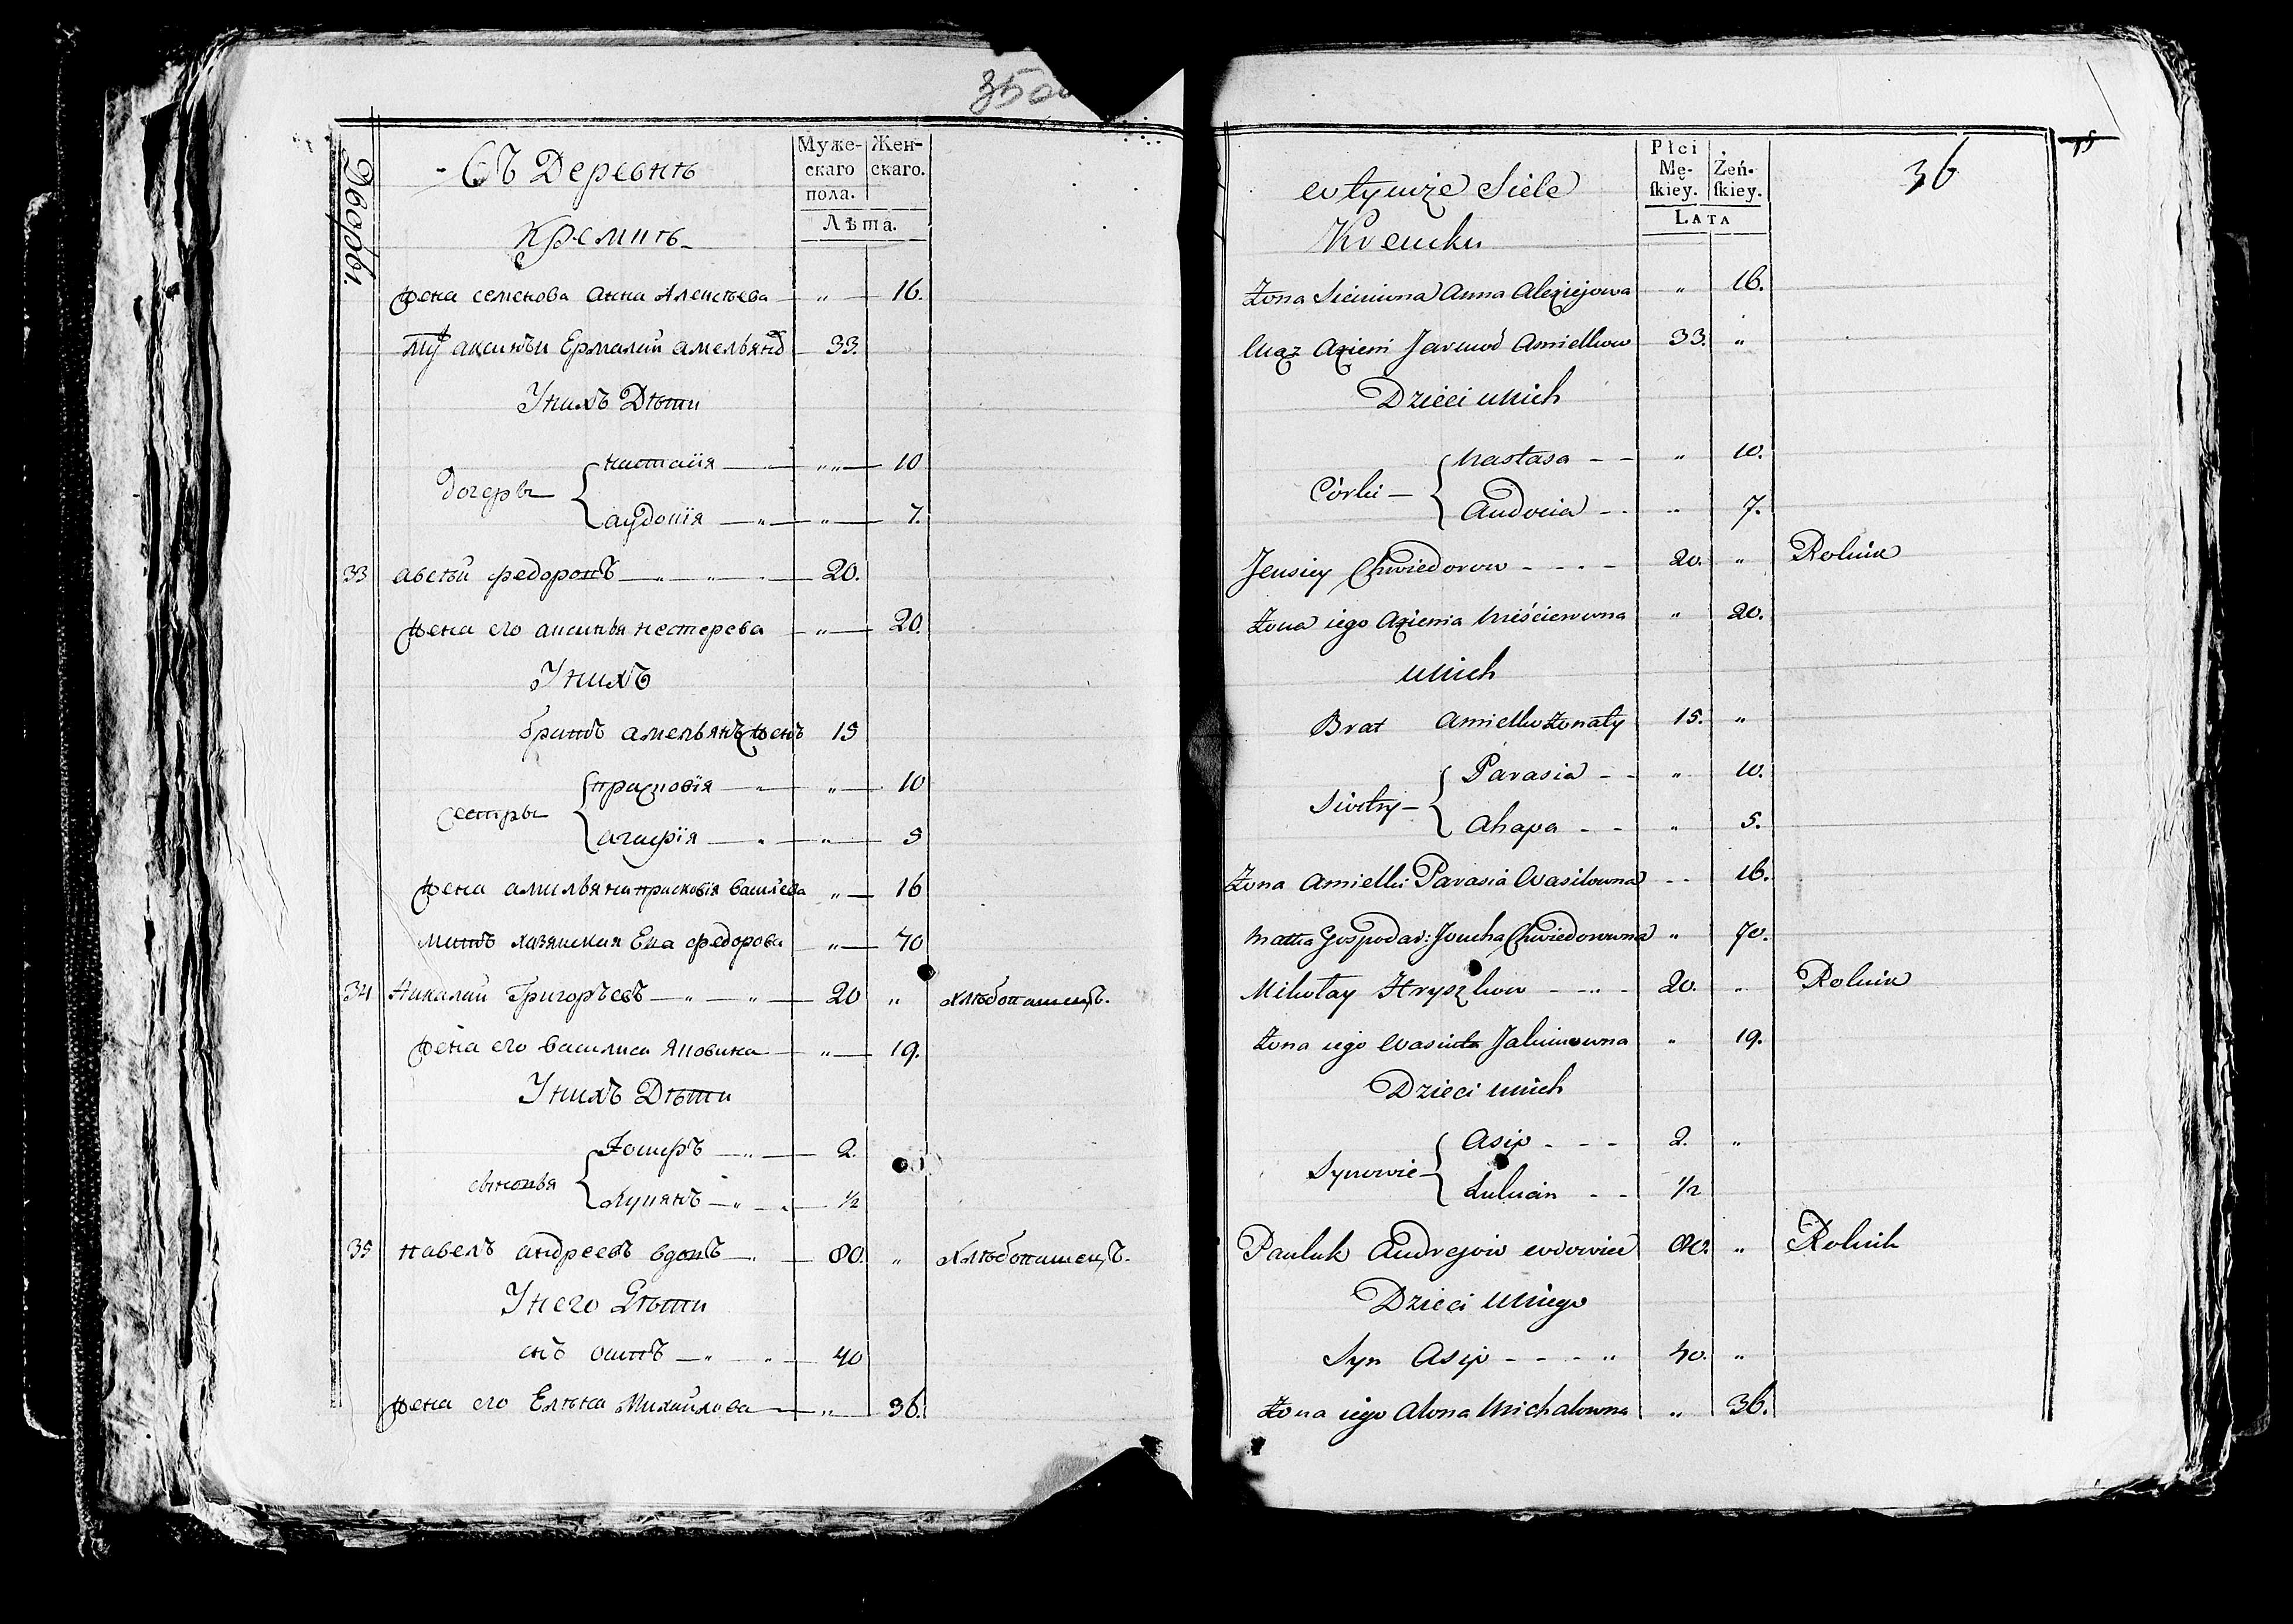 35 об
Дворы.
Въ Деревнѣ
Кремнѣ
Муже-
скаго
пола.
Жен-
скаго.
Лѣта.
жена семенова анна Алексѣева — „ — 16.
Мꙋ аксиньи Ермалай амельянъ — 33.
У нихъ Дѣти
дочеры
настасія — „ „ — 10
аудотія — „ — „ — 7.
33 авсѣй федоровъ — „ — „ — 20.
жена его аксинья нестерева — „ — 20.
У нихъ
братъ амельянъ женъ 15
сестры
прасковія — „ — „ — 10
агафія — „ — „ — 5
жена амильяна прасковія васи'ева „ — 16
мать хазяиская Ева федорова — „ — 70
34 Николай Григорьевъ — „ — „ — 20 „ хлѣбопашецъ.
жена его василиса Яковива — „ — 19.
У нихъ Дѣти
сыновья
Іосифъ — „ — 2.
Лукянъ — „ — 1/2
35 павелъ андреевъ вдовъ — „ — 80. „ Хлѣбопашецъ.
У него Дѣти
снъ осипъ — „ — „ — 40
жена его Елѣна Михайлова — „ — 36.
w tymże Siele
Kremku
Płci
Mę-
ſkiey.
Żeń-
ſkiey.
LATA
36
Żona Siemiona Anna Alexiejowa „ 16.
Mąż Axieni Jarmoł Amielkow 33. „
Dzieci u nich
Córki —
Nastasa - - „ 10.
Audocia - - „ 7.
Jeusiey Chwiedorow - - - - 20. „ Rolnik
Żona iego Axienia Nieścierowna „ 20.
u nich
Brat Amielko Żonaty 15. „
Siostry —
Parasia - - „ 10.
Ahapa - - „ 5.
Żona Amielki Parasia Wasilowna - - 16.
Matka Gospodar: Joucha Chwiedorowna „ 70.
Mikołay Hryszkow - - „ - 20. „ Rolnik
Żona iego Jakimowna „ 19.
Dzieci u nich
Synowie —
Asip - - - 2. „
Łukian - - 1/2
Pauluk Andrejow wdowiec 80. „ Rolnik
Dzieci u niego
Syn Asip - - - „ 40. „
Żona iego Alona Michałowna „ 36.